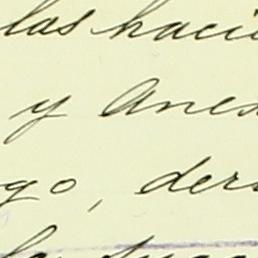 las haci
y Anes
go, ders
la